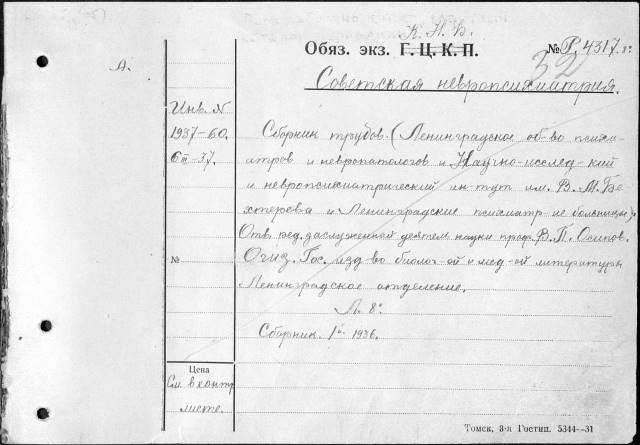 К. Н. Б.
Обяз. экз. Г. Ц. К. П. № Р. 4317.
32
А.
Советская невропсихиатрия.
Инв. N
1937-60.
6/III-37.
Сборник трудов. (Ленинградское об-во психи-
атров и невропатологов и Научно-исслед-кий
и невропсихиатрический ин-тут им. В. М. Бе-
хтерева и Ленинградские психиатр-ие больницы).
Отв. ред. заслуженной деятель науки проф. В. П. Осипов.
№
Огиз. Гос. изд-во биолог-ой и мед-ой литературы
Ленинградское отделение.
Л. 8°
Сборник. 1й 1936.
Цена
См. в контр
листе.
Томск, 3-я Гостип. 5344—31